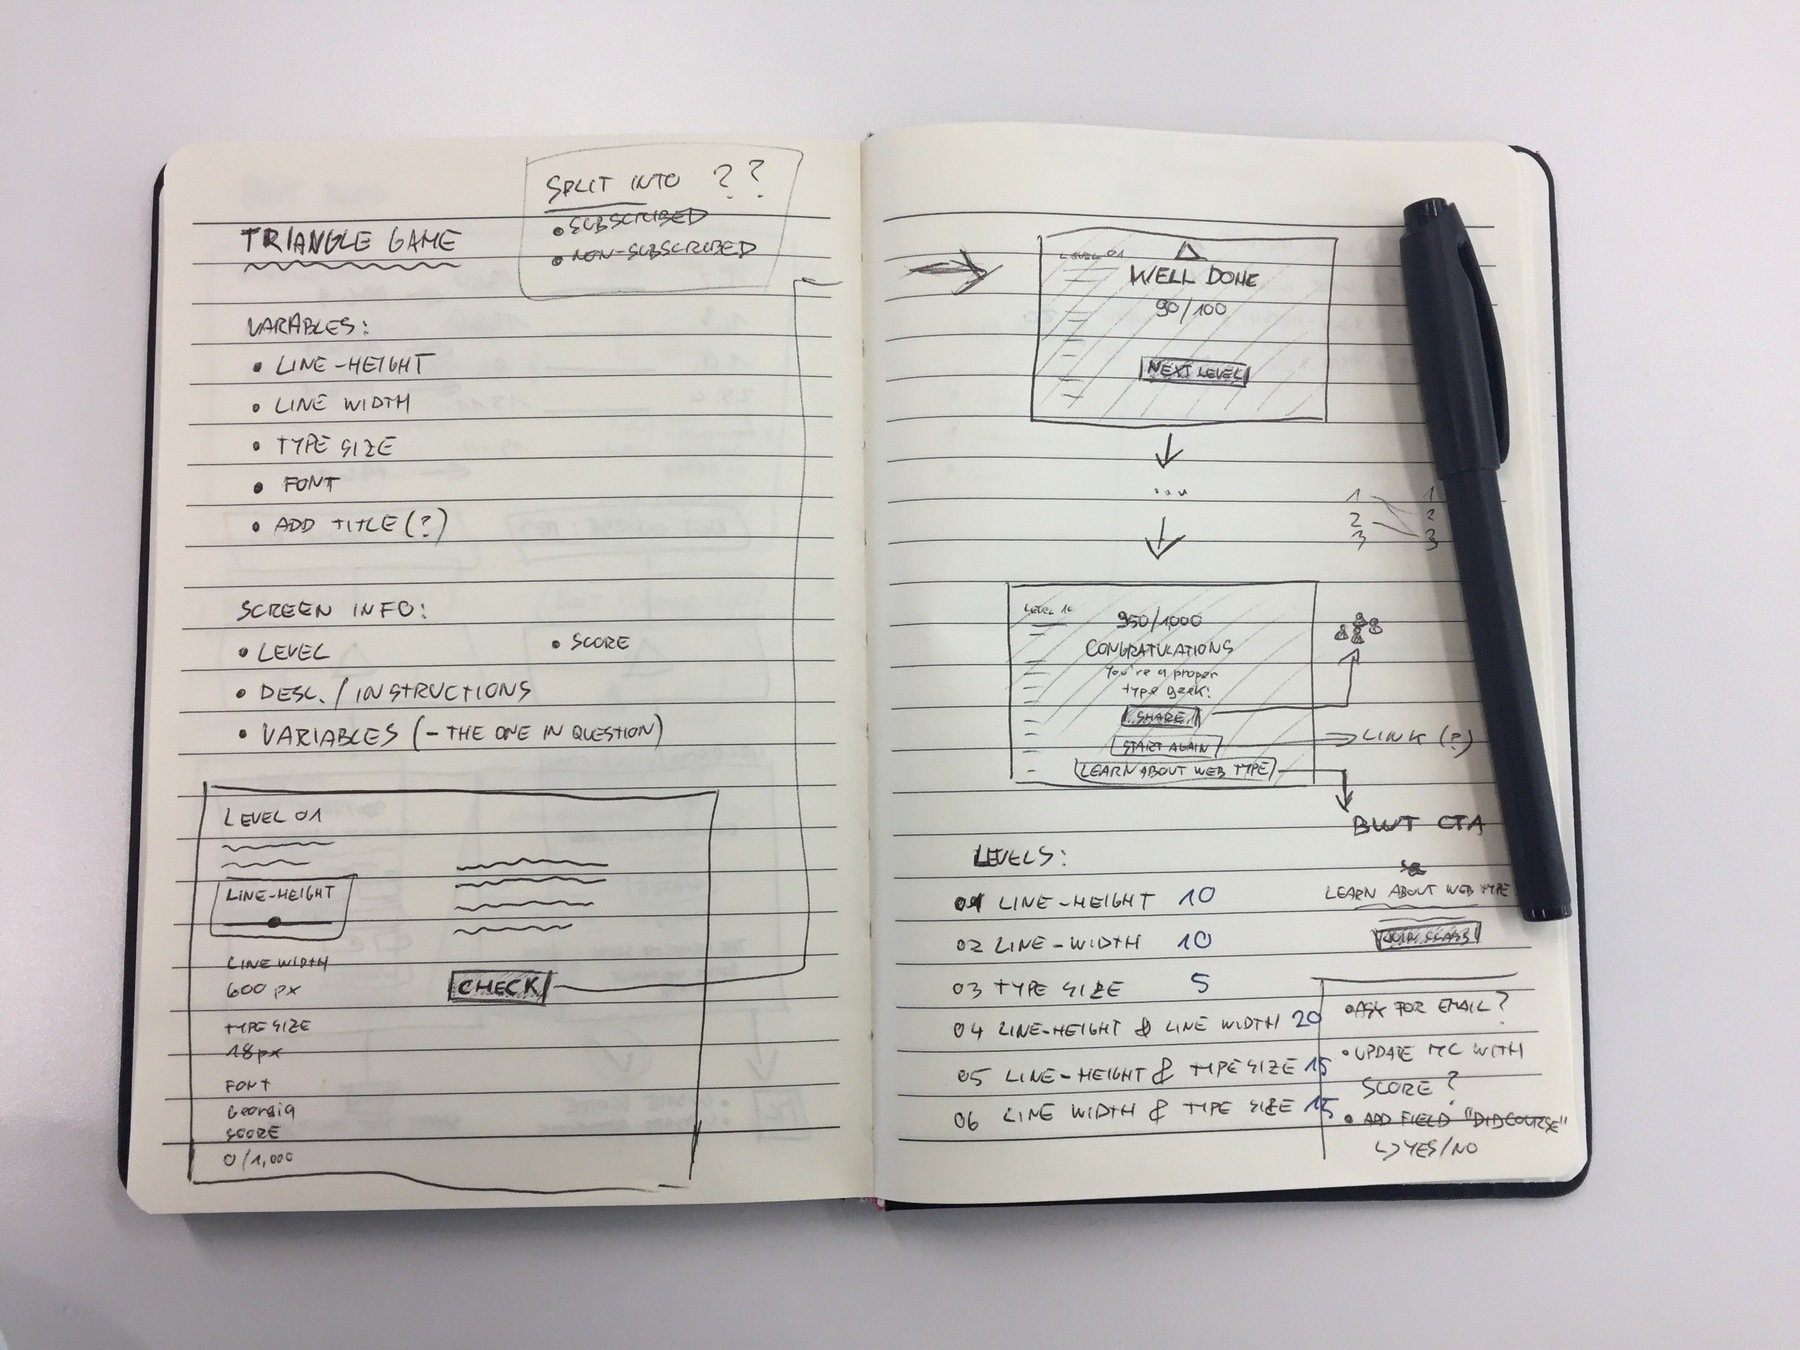 SPLIT INTO ??
• SUBSCRIBED
• NON-SUBSCRIBED
TRIANGLE GAME
VARIABLES:
• LINE-HEIGHT
• LINE WIDTH
• TYPE SIZE
• FONT
• ADD TITLE (?)
SCREEN INFO:
• LEVEL
• SCORE
• DESC. / INSTRUCTIONS
• VARIABLES (- THE ONE IN QUESTION)
LEVEL 01
LINE-HEIGHT
LINE WIDTH
600 px
TYPE SIZE
18px
FONT
Georgia
SCORE
0/1,000
CHECK
LEVEL 01
WELL DONE
90/100
NEXT LEVEL
...
1 1
2 2
3 3
LEVEL 10
950/1000
CONGRATULATIONS
You're a proper
type geek!
SHARE
START AGAIN
LINK (?)
LEARN ABOUT WEB TYPE
BWT CTA
LEARN ABOUT WEB TYPE
JOIN CLASS
LEVELS:
01 LINE-HEIGHT 10
02 LINE-WIDTH 10
03 TYPE SIZE 5
04 LINE-HEIGHT & LINE WIDTH 20
05 LINE-HEIGHT & TYPE SIZE 15
06 LINE WIDTH & TYPE SIZE 15
• ASK FOR EMAIL?
• UPDATE MC WITH
SCORE?
• ADD FIELD "DIDCOURSE"
↳ YES/NO